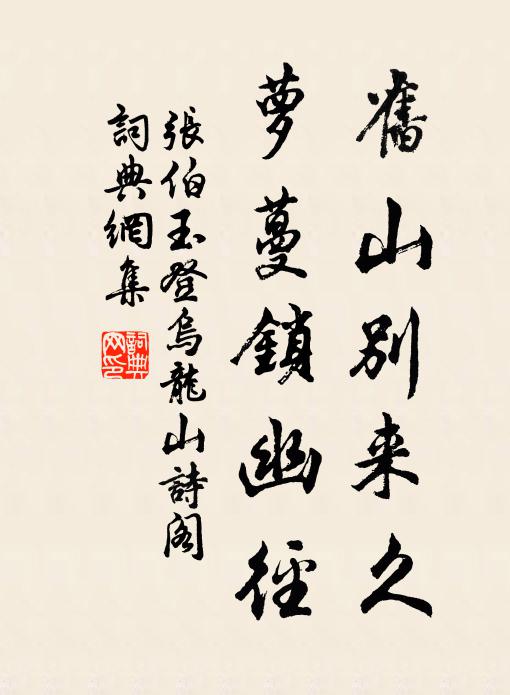 舊山別来久
萝蔓鎖幽徑
張伯玉登烏龍山詩阁
詞典網集
詞典
网印